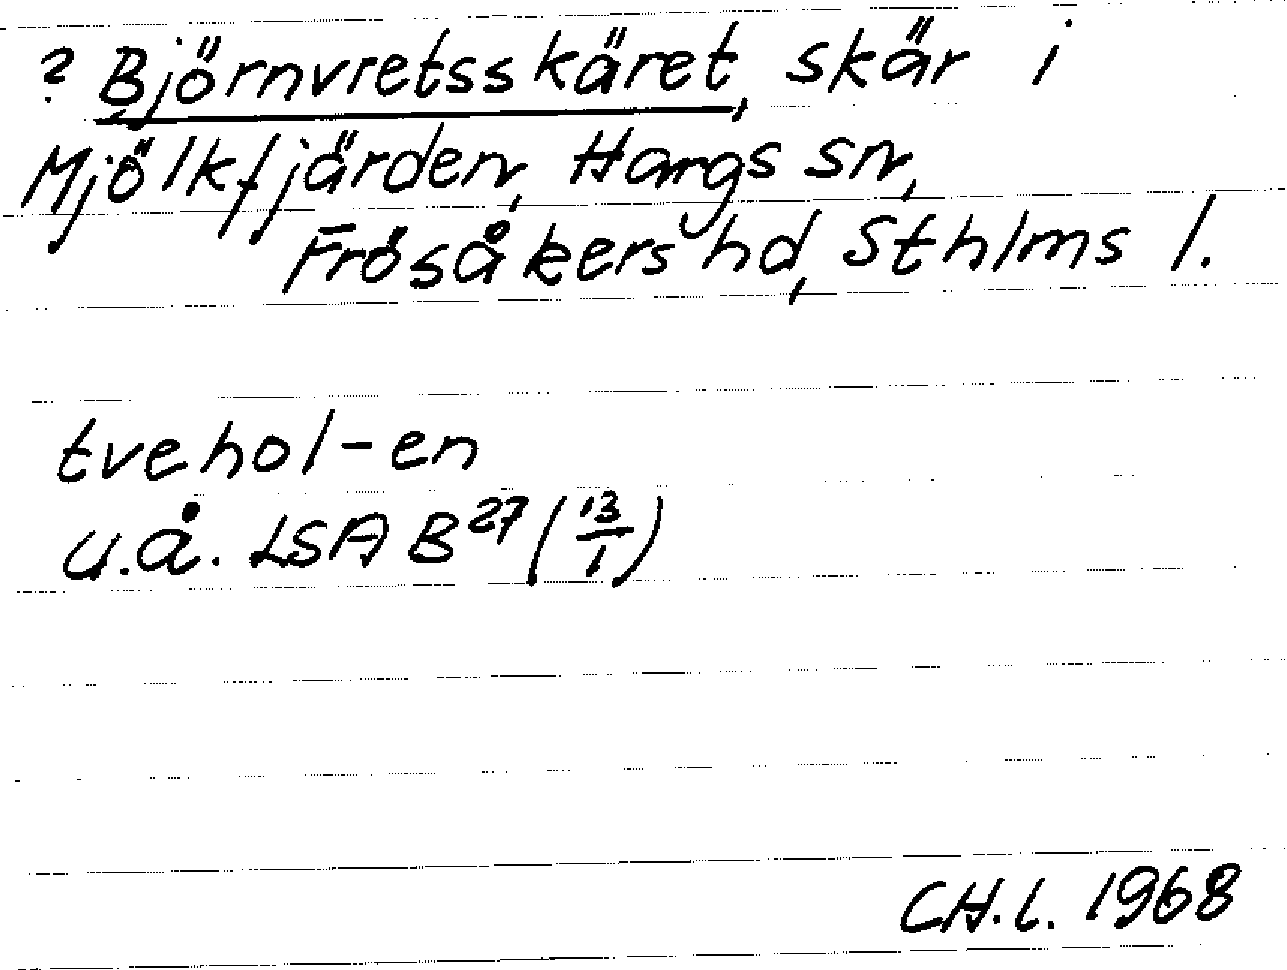 ? Björnvretsskäret, skär i
Mjölkfjärden, Hargs sn,
Frösåkers hd, Sthlms l.
tvehol-en
u.å. LSA B²⁷ (13/1)
CH.L. 1968